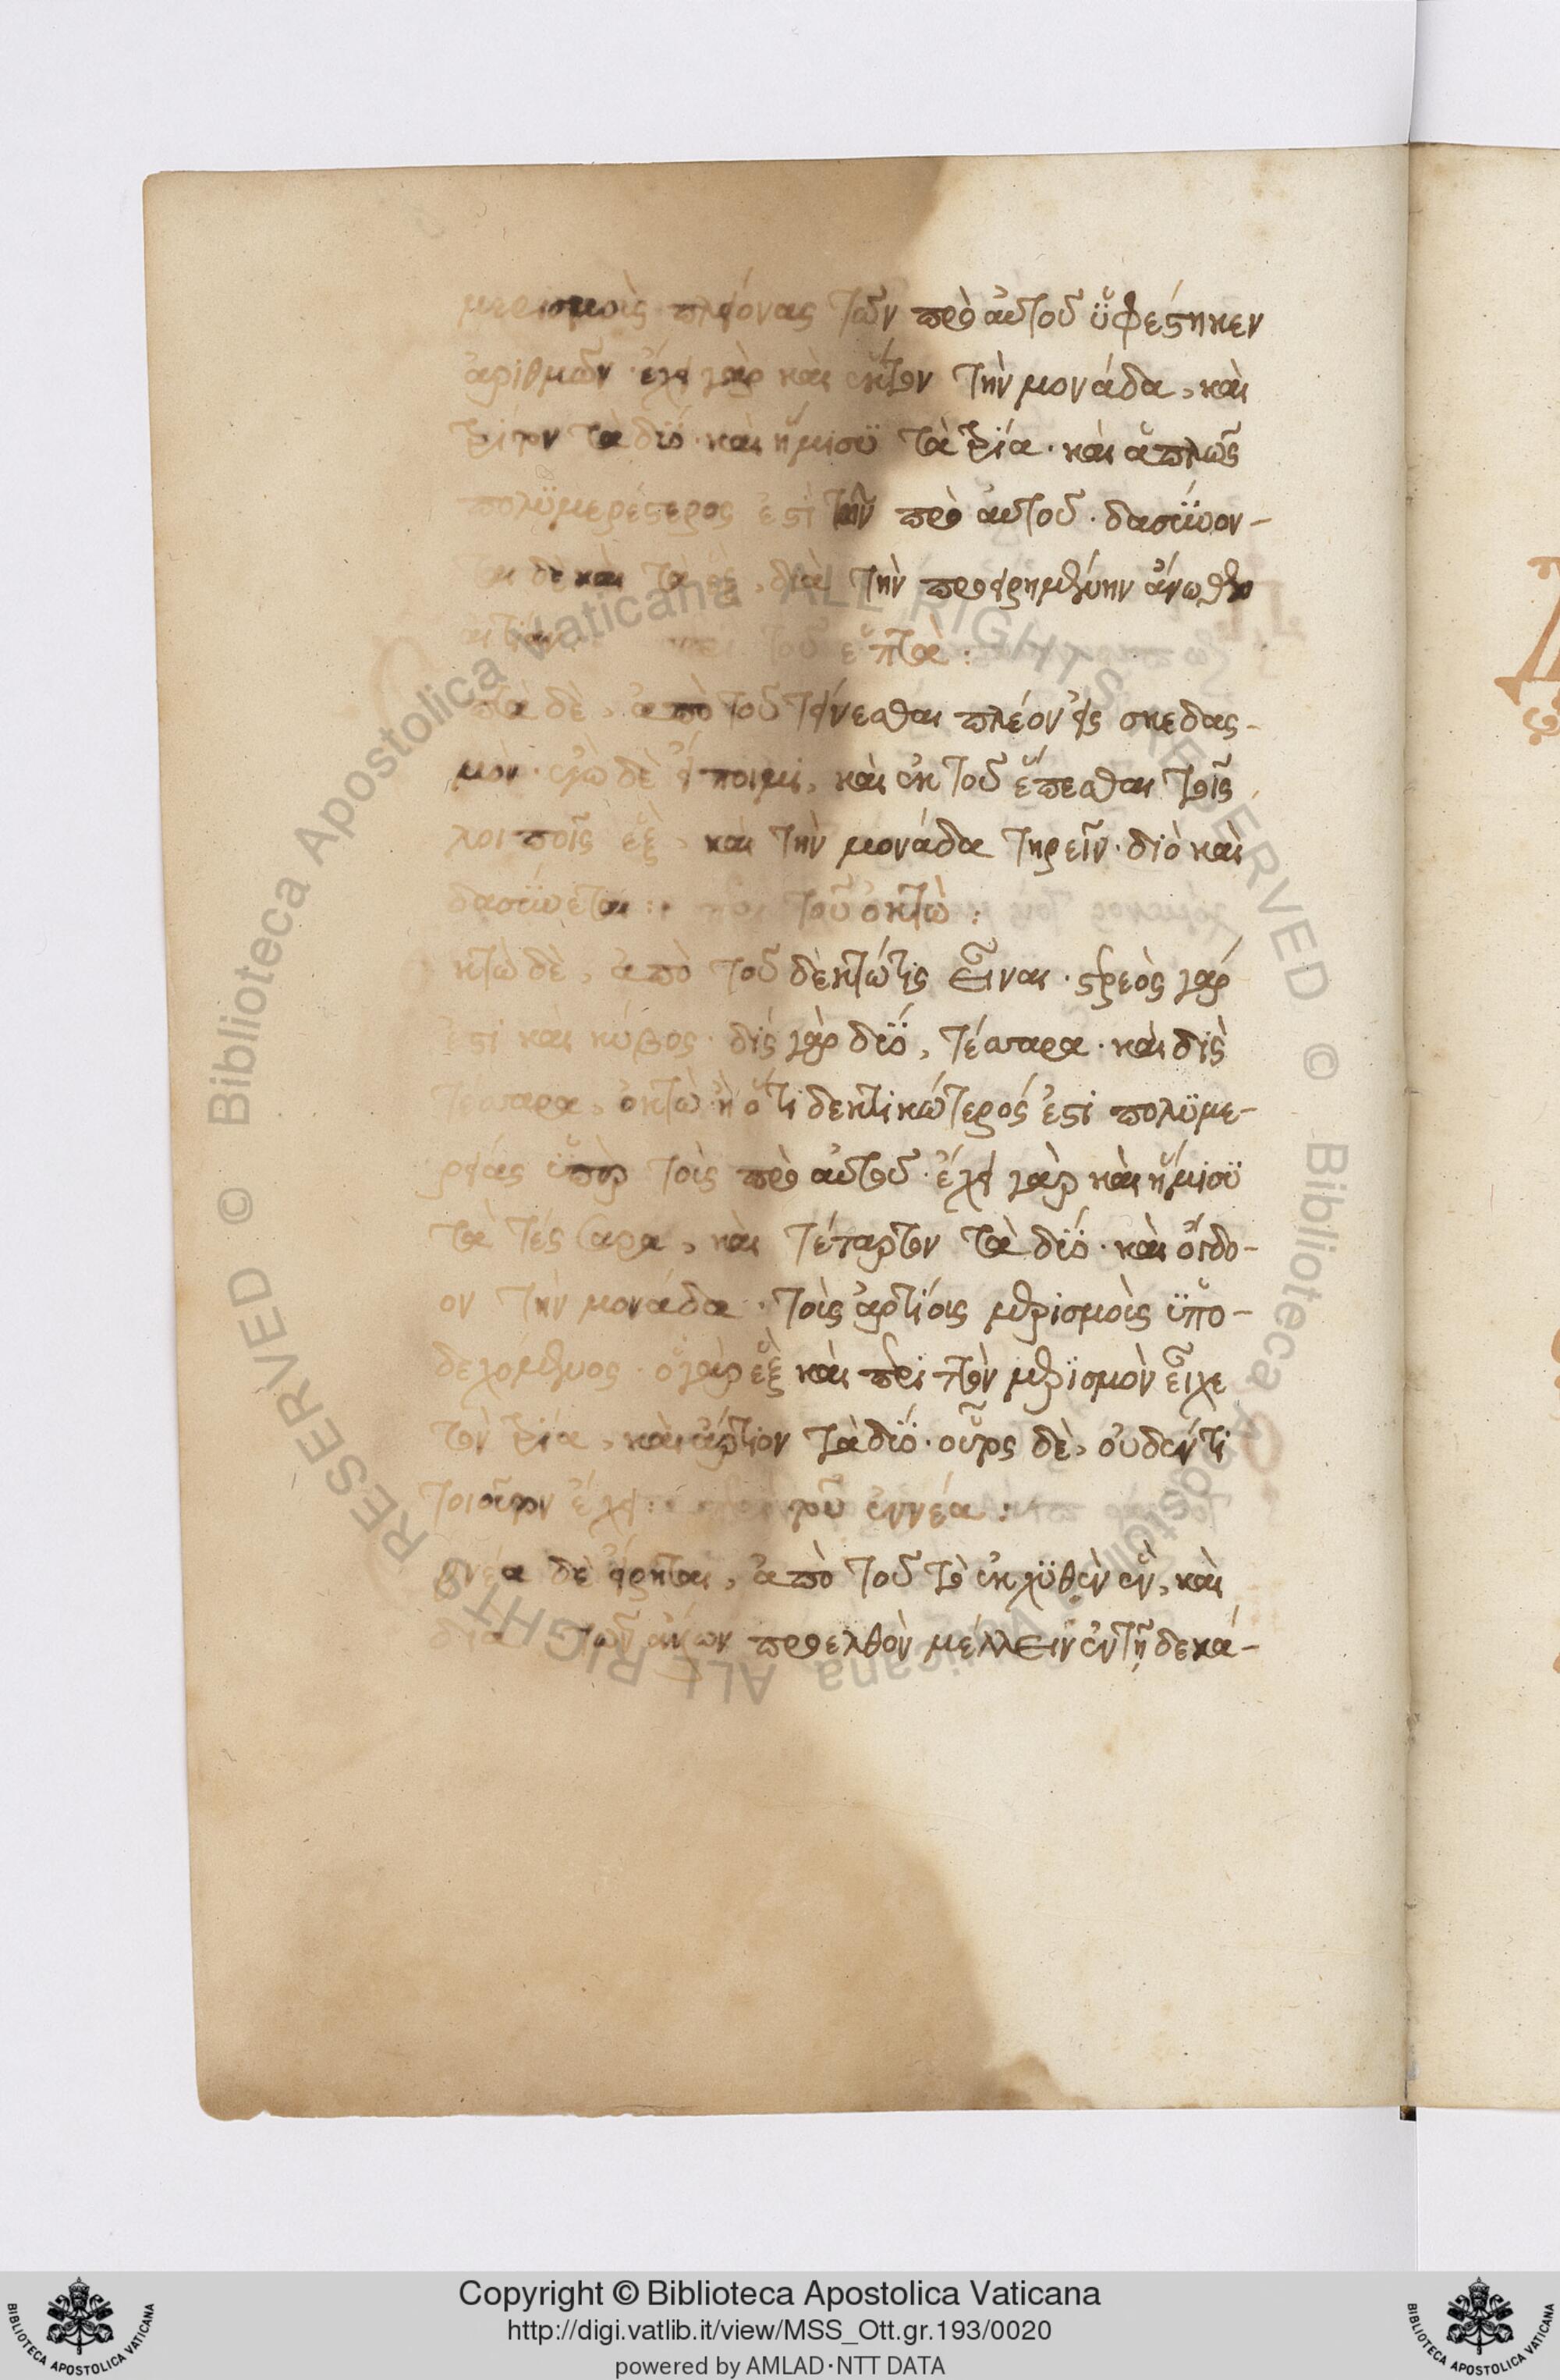 μερισμοὺς πλείονας τῶν πρὸ αὐτοῦ ὑφέστηκεν
ἀριθμῶν· ἔχει γὰρ καὶ ἕκτον τὴν μονάδα, καὶ
τρίτον τὰ δύο· καὶ ἥμισυ τὰ τρία· καὶ ἁπλῶς
πολυμερέστερος ἐστὶ τῶν πρὸ αὐτοῦ· δασύνον-
ται δὲ καὶ τὰ ἓξ, διὰ τὴν προειρημένην ἄνωθεν
αἰτίαν τοῦ ἑπτὰ:
πτὰ δὲ, ἀπὸ τοῦ τείνεσθαι πλέον εἰς σκεδασ-
μόν· ἐγὼ δὲ εἴποιμι, καὶ ἐκ τοῦ ἕπεσθαι τοῖς
λοιποῖς ἓξ, καὶ τὴν μονάδα τηρεῖν· διὸ καὶ
δασύνεται: τοῦ ὀκτὼ:
κτὼ δὲ, ἀπὸ τοῦ δεκτώτις εἶναι· στερεὸς γάρ
ἐστι καὶ κύβος· δὶς γὰρ δύο, τέσσαρα· καὶ δὶς
τέσσαρα, ὀκτὼ· ἢ ὅτι δεκτικώτερός ἐστι πολυμε-
ρείας ὑπὲρ τοὺς πρὸ αὐτοῦ· ἔχει γὰρ καὶ ἥμισυ
τὰ τέσσαρα, καὶ τέταρτον τὰ δύο· καὶ ὄγδο-
ον τὴν μονάδα· τοὺς ἀρτίους μερισμοὺς ὑπο-
δεχόμενος· ὁ γὰρ ἓξ καὶ περιττὸν μερισμὸν εἶχε
τὸν τρία, καὶ ἄρτιον τὰ δύο· οὗτος δὲ, οὐδέν τι
τοιοῦτον ἔχει: τοῦ ἐννέα:
ννέα δὲ εἴρηται, ἀπὸ τοῦ τὸ ἐκχυθὲν ἓν, καὶ
διὰ τῶν ἄνων προελθὸν μέλλειν ἐν τῇ δεκά-
Copyright © Biblioteca Apostolica Vaticana
http://digi.vatlib.it/view/MSS_Ott.gr.193/0020
powered by AMLAD·NTT DATA